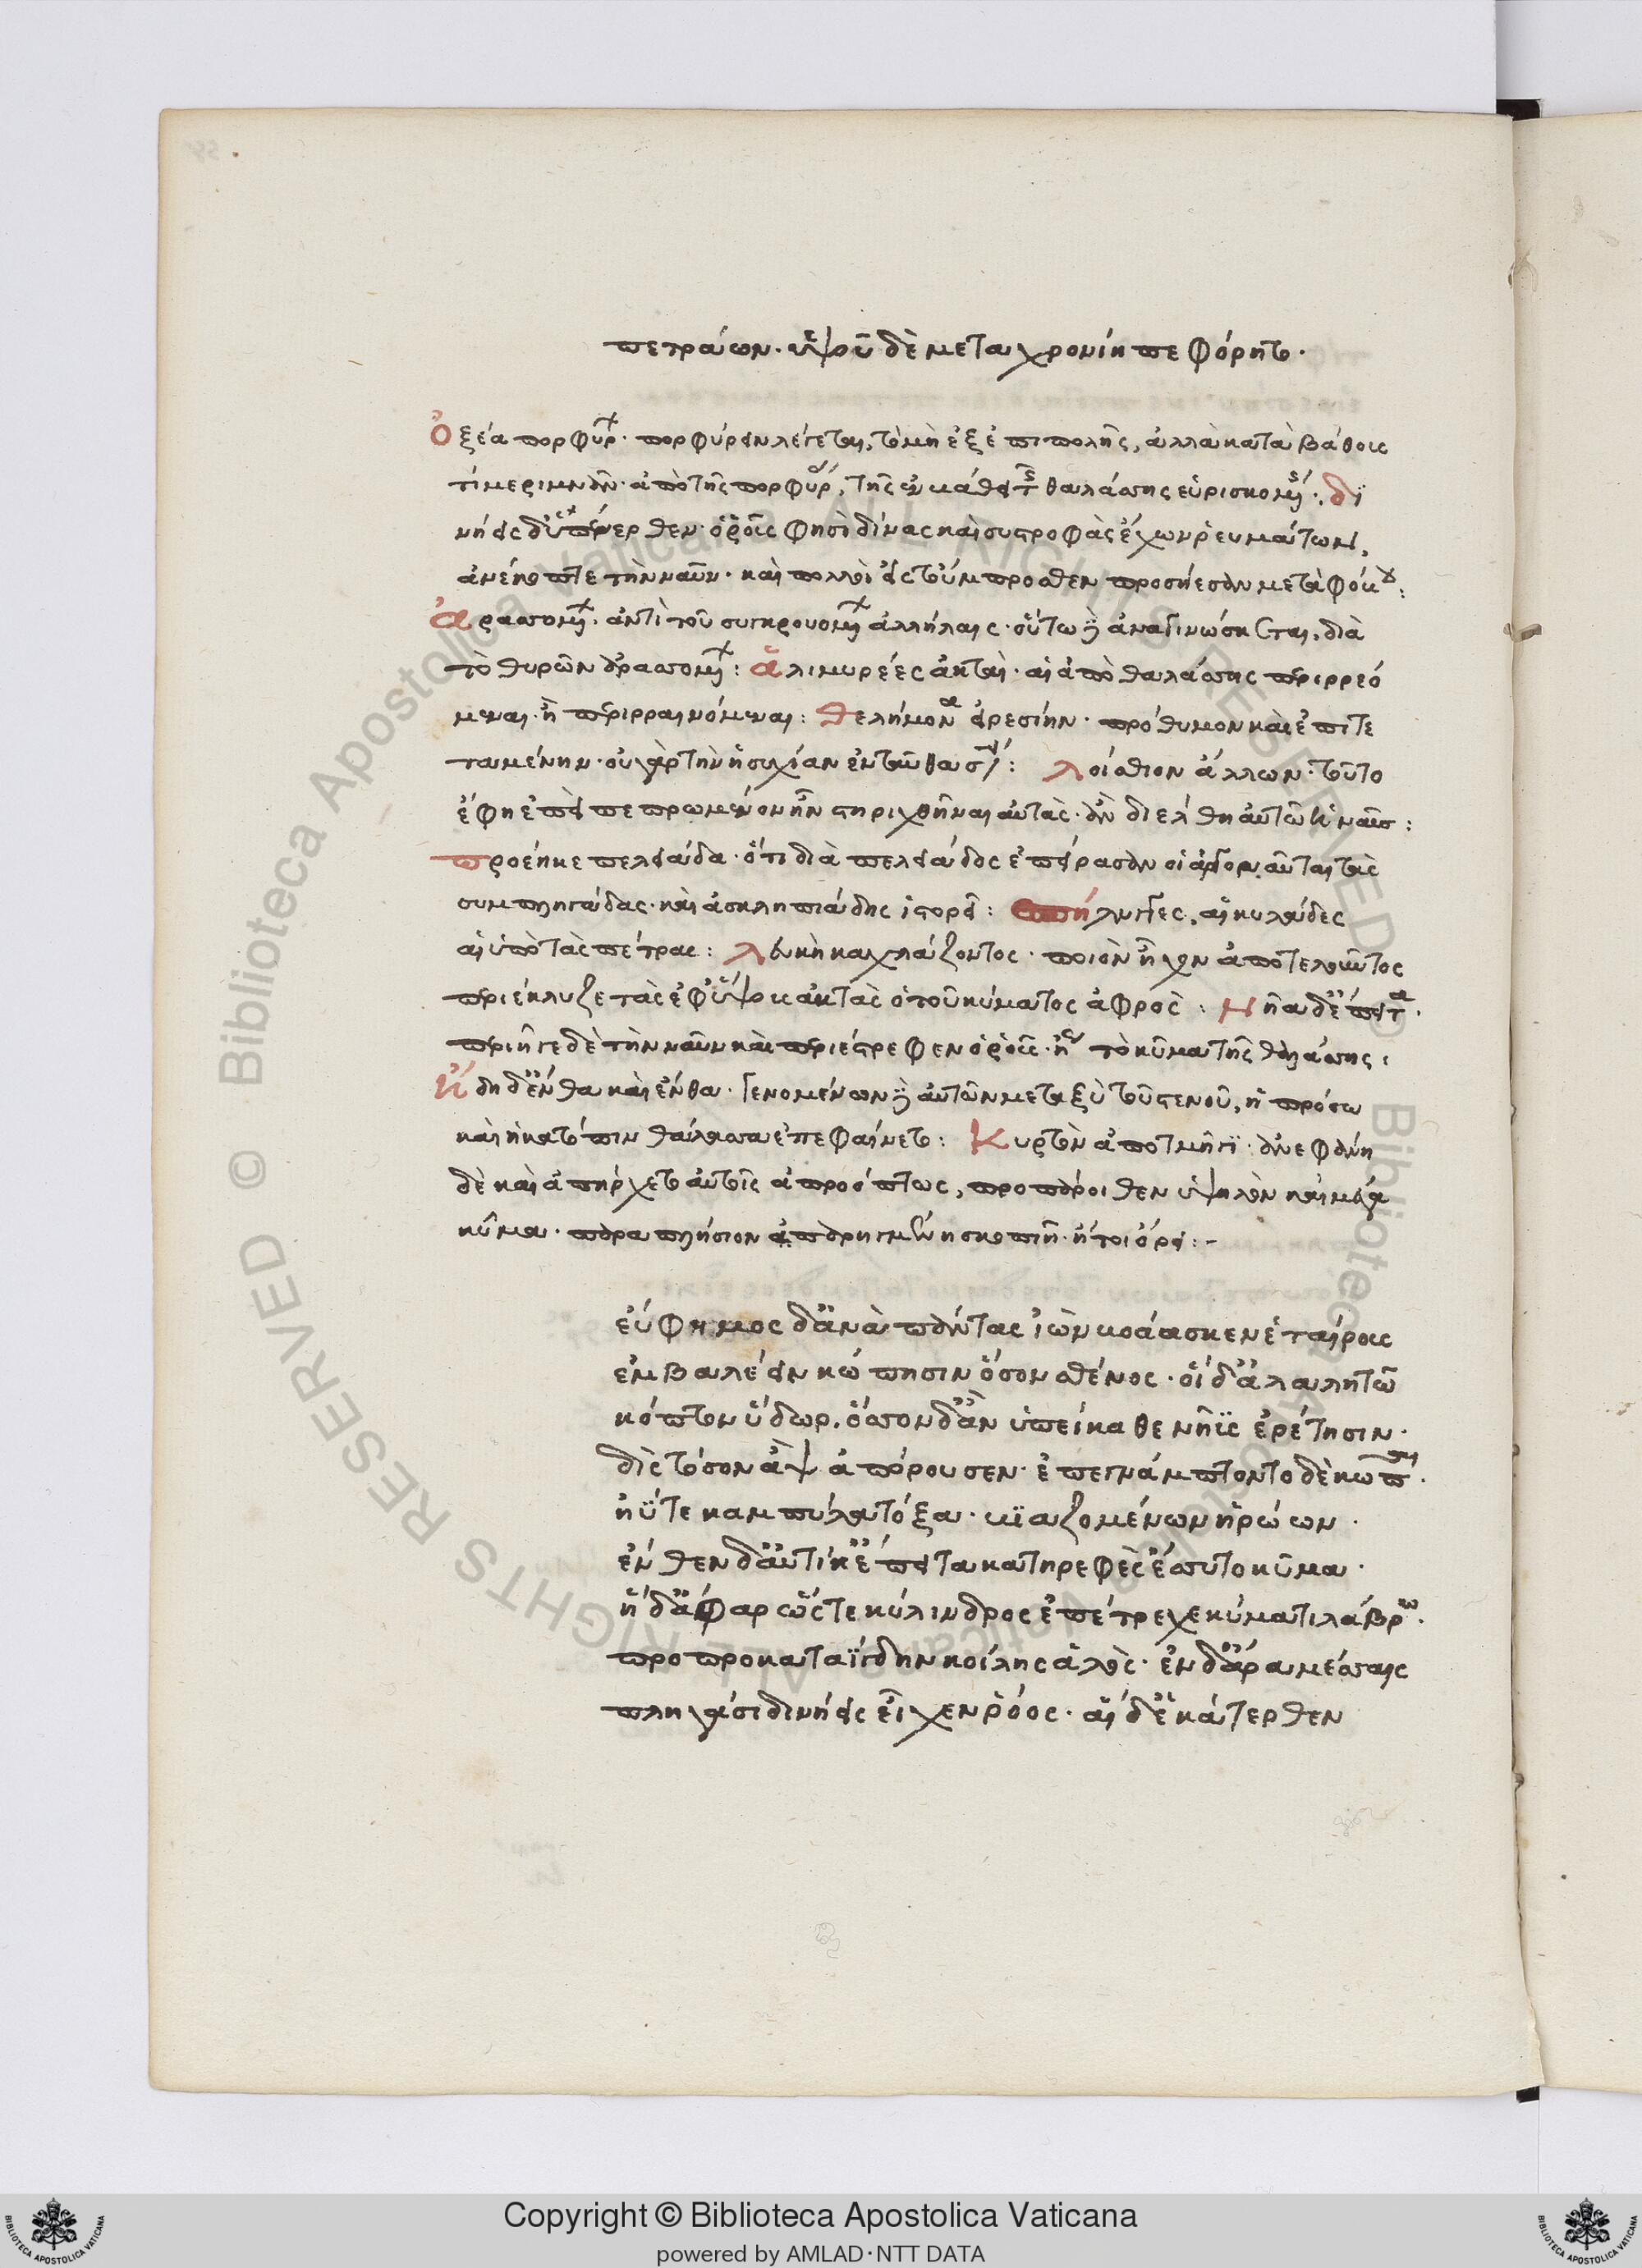 πετράων. ὑψοῦ δὲ μεταχρονίη πεφόρητο.
Ὀξέα πορφύρ. πορφύρειν λέγεται, τὸ μὴ ἐξ ἐπιπολῆς, ἀλλὰ κατὰ βάθους
τί μεριμνᾶν. ἀπὸ τῆς πορφύρ, τῆς ἐν βάθει τ θαλάσσης εὑρισκομ. δι
νήεις δ ὑπένερθεν ὁ ῥοῦς φησὶ δίνας καὶ συστροφὰς ἔχων ῥευμάτων,
ἀνέκοπτε τὴν ναῦν. καὶ πολλοὶ εἰς τοὔμπροσθεν προσήεσαν μετὰ φόβου:
Ἀρασσομ. ἀντὶ τοῦ συγκρουομ ἀλλήλαις. οὕτω γ ἀναγινώσκεται, διὰ
τὸ θυρῶν ἀρασσομ: ἁλιμυρέες ἀκταὶ. αἱ ἀπὸ θαλάσσης περιρρεό
μεναι. ἢ περιρραινόμεναι: θελήμονα εἰρεσίην. πρόθυμον καὶ ἐπιτε
ταμένην. οὐ γὰρ τὴν ἡσυχίαν ἐνταῦθα: λοίσθιον ἄλλων. τοῦτο
ἔφη ἐπεὶ πεπρωμένον ἦν στηριχθῆναι αὐτὰς. ἂν διέλθη αὐτῶν ἡ ναῦς:
προέηκε πελειάδα. ὅτι διὰ πελειάδος ἐπείρασαν οἱ ἀργοναῦται τὰς
συμπληγάδας. καὶ ἀσκληπιάδης ἱστορεῖ: σπήλυγγες, αἱ κοιλάδες
αἱ ὑπὸ τὰς πέτρας: λευκὴ καχλάζοντος. ποιὸν ἦχον ἀποτελοῦντος
περιέκλυζε τὰς ἐφ ὕψους ἀκτὰς ὁ τοῦ κύματος ἀφρὸς: Νῆα δ ἔπειτα.
περιῆγε δὲ τὴν ναῦν καὶ περιέστρεφεν ὁ ῥοῦς. ἢ τὸ κῦμα τῆς θαλάσσης:
ἤδη δ ἔνθα καὶ ἔνθα. γενομένων γ αὐτῶν μεταξὺ τοῦ στενοῦ, ἡ πρόσω
καὶ ἡ κατόπιν θάλασσα ἐπεφαίνετο: Κυρτὸν ἀποτμῆγι. ἀνεφάνη
δὲ καὶ ἀπήρχετο αὐτοῖς ἀπροόπτως, προπάροιθεν ὑψηλὸν καὶ μέγα
κῦμα. παραπλήσιον ἀποτμῆγι σκοπιῆ. ἤτοι ὄρει:-
εὔφημος δ ἀνὰ πάντας ἰὼν βοάασκεν ἑταίρους
ἐμβαλέειν κώπησιν ὅσον σθένος. οἱ δ ἀλαλητῶ
κόπτον ὕδωρ. ὅσσον δ ἂν ὑπείκαθε νηῦς ἐρέτησιν.
δὶς τόσον ἂψ ἀπόρουσεν. ἐπεγνάμπτοντο δὲ κῶπαι.
ἠΰτε καμπύλα τόξα. βιαζομένων ἡρώων.
ἔνθεν δ αὐτίκ ἔπειτα κατηρεφὲς ἔσσυτο κῦμα.
ἡ δ ἄφαρ ὥς τε κύλινδρος ἐπέτρεχε κύματι λάβρω.
προπροκαταΐγδην κοίλης ἁλὸς. ἐν δ ἄρα μέσσαις
πληγάσι δινήεις εἶχεν ῥόος. αἱ δ ἑκάτερθεν
Copyright © Biblioteca Apostolica Vaticana
powered by AMLAD·NTT DATA